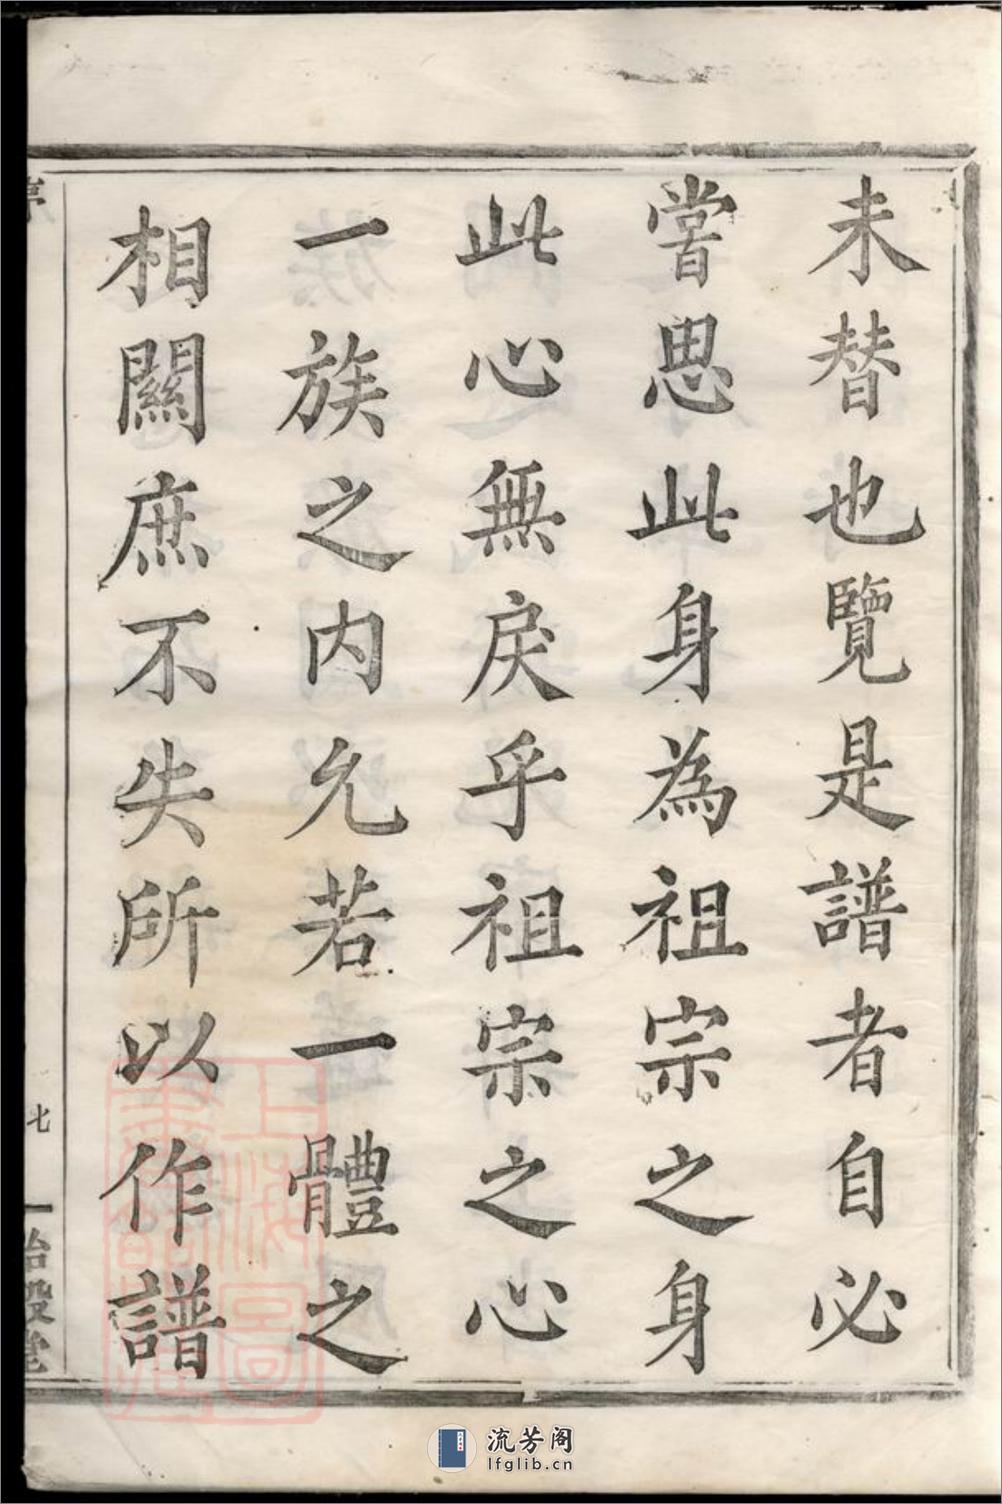 未替也覽是譜者自必
嘗思此身為祖宗之身
此心無戾乎祖宗之心
一族之內允若一體之
相關庶不失所以作譜
序
七
詒穀堂
上海圖書館藏
流芳阁
lfglib.cn